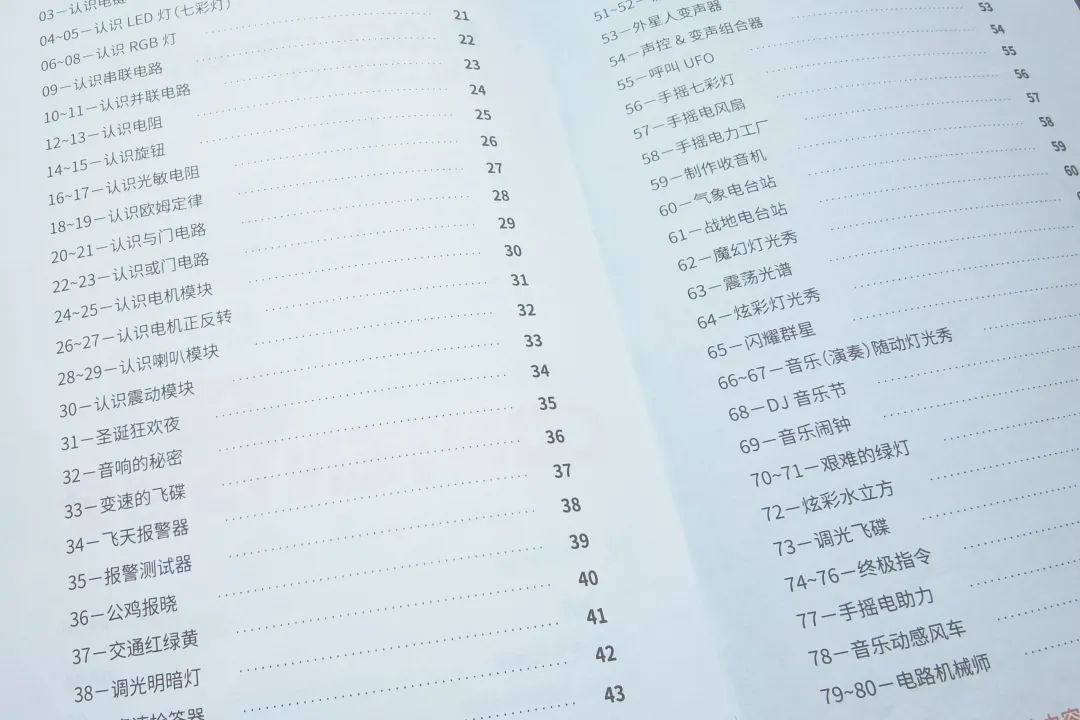 04~05－认识 LED 灯（七彩灯）
06~08－认识 RGB 灯 21
09－认识串联电路 22
10~11－认识并联电路 23
12~13－认识电阻 24
14~15－认识旋钮 25
16~17－认识光敏电阻 26
18~19－认识欧姆定律 27
20~21－认识与门电路 28
22~23－认识或门电路 29
24~25－认识电机模块 30
26~27－认识电机正反转 31
28~29－认识喇叭模块 32
30－认识震动模块 33
31－圣诞狂欢夜 34
32－音响的秘密 35
33－变速的飞碟 36
34－飞天报警器 37
35－报警测试器 38
36－公鸡报晓 39
37－交通红绿黄 40
38－调光明暗灯 41
抢答器 42
43
51~52－
53－外星人变声器
54－声控 & 变声组合器 53
55－呼叫 UFO 54
56－手摇七彩灯 55
57－手摇电风扇 56
58－手摇电力工厂 57
59－制作收音机 58
60－气象电台站 59
61－战地电台站 60
62－魔幻灯光秀
63－震荡光谱
64－炫彩灯光秀
65－闪耀群星
66~67－音乐（演奏）随动灯光秀
68－DJ 音乐节
69－音乐闹钟
70~71－艰难的绿灯
72－炫彩水立方
73－调光飞碟
74~76－终极指令
77－手摇电助力
78－音乐动感风车
79~80－电路机械师